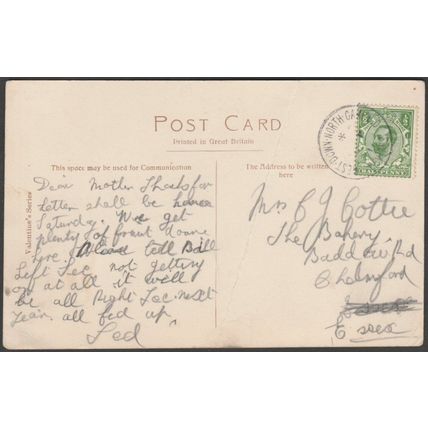 POST CARD
Printed in Great Britain
This space may be used for Communication
The Address to be written
here
Valentine's Series
Dear Mother Thanks for
letter shall be home
Saturday. We get
plenty of fruit Home
tell Bill
Left Sec not getting
on at all it will
be all Right Sec next
Year. all fed up
Ted
Mrs C J Gottie
The Bakery
Baddow Rd
Chelmsford
Essex
Essex